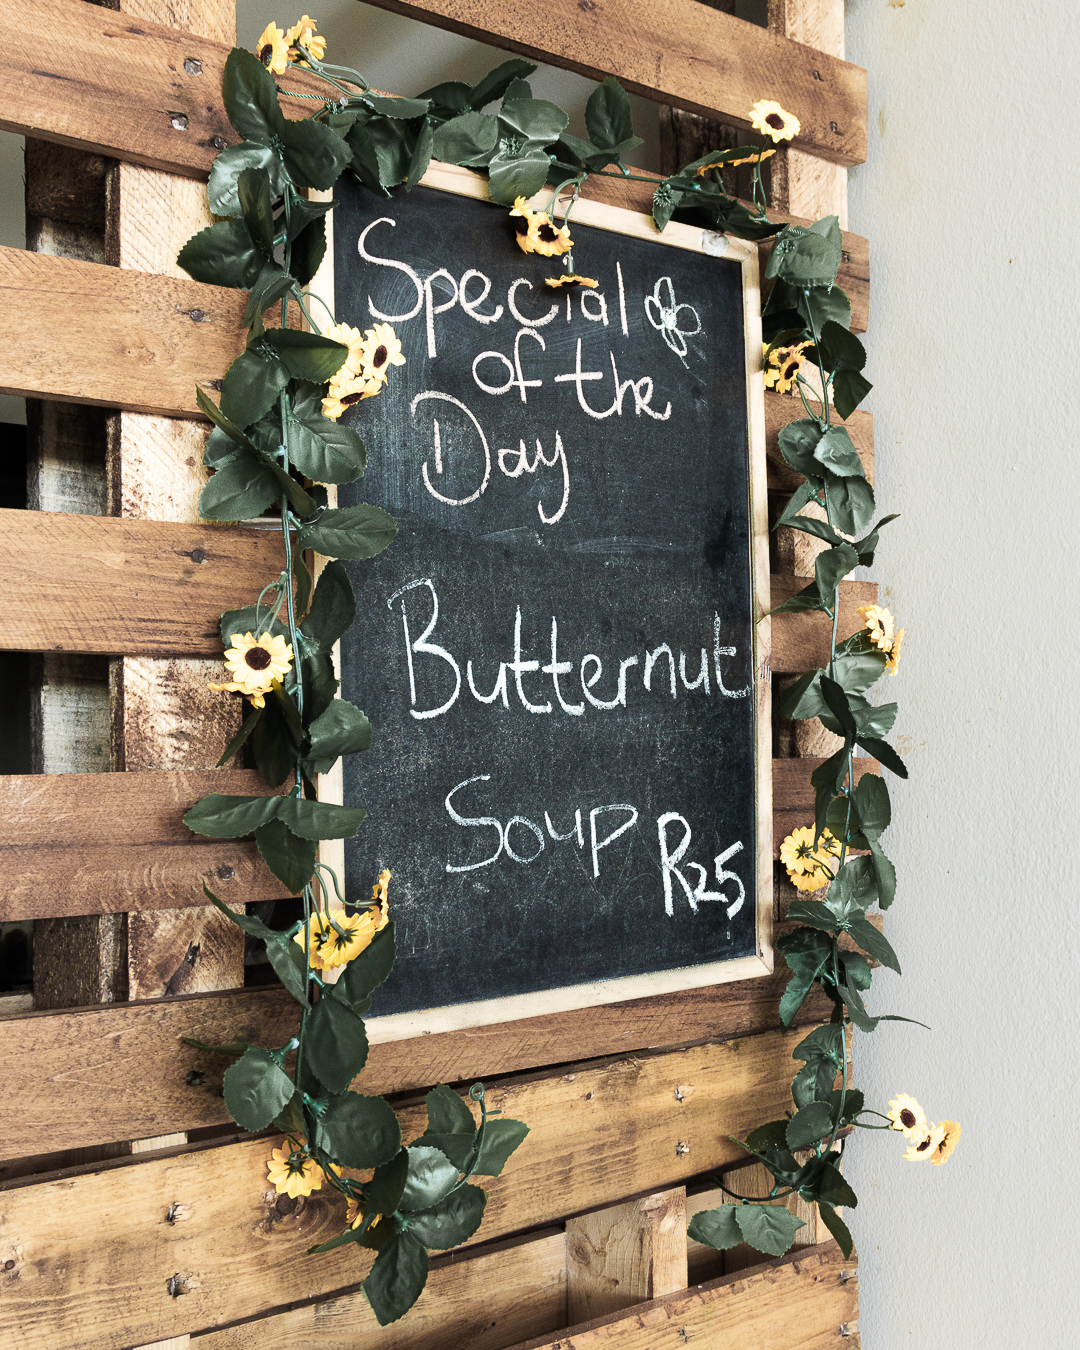 Special
of the
Day
Butternut
Soup R25